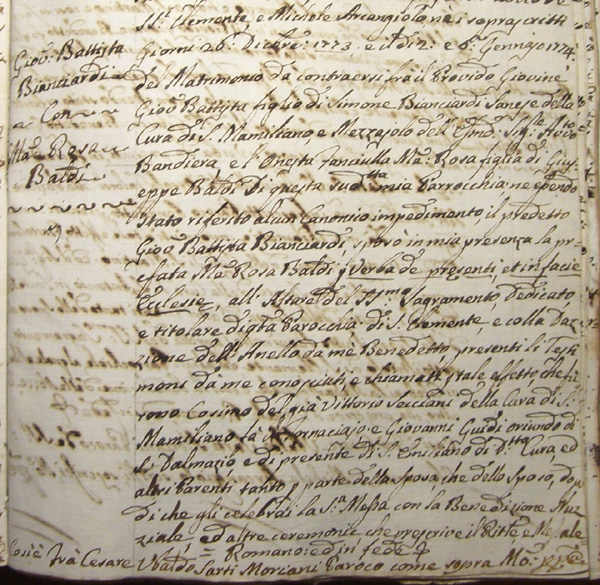 SSti. Clemente, e Michele Arcangiolo nei sopra scritti
Giorni 26. Dicbre. 1773. e il dì 2. e 6. Gennajo 1774.
Giov: Battista
Bianciardi
Con
Ma. Rosa
Baldi
del Matrimonio da contraersi frà il Provido Giovine
Giov: Battista figlio di Simone Bianciardi Sanese della
Cura di S. Mamiliano e Mezzajolo dell'
Bandiera, e l'Onesta Fanciulla Ma: Rosa figlia di Gius-
eppe Baldi di questa sudtta mia Parrocchia, ne essendo
stato riferito alcun Canonico impedimento il predetto
Giov: Battista Bianciardi, sposò in mia presenza la pre-
fata Ma. Rosa Baldi p verba de presenti, et in facie
Ecclesie, all'Altare del SSmo Sagramento, Dedicato,
e titolare di qta Parocchia di S. Clemente, e colla Daz-
zione dell'Anello da me Benedetto, presenti li Testi-
moni da me conosciuti, e chiamati p tale effetto che fu-
rono Cosimo del già Vittorio della Cura di S.
Mamiliano fà e Giovanni Guidi oriundo di
S. Dalmazio e di presente di S. Emiliano di dtta Cura, ed
altri Parenti tanto p parte della Sposa, che dello Sposo, do-
di che gli celebrai la Sa. Messa con la Benedizione Nuz-
ziale, ed altre ceremonie che prescrive il Ritle e Messale
= Romano: ed in fede
Così è Frà Cesare Ubaldo Sarti Moriani Paroco come sopra Mo: ppa